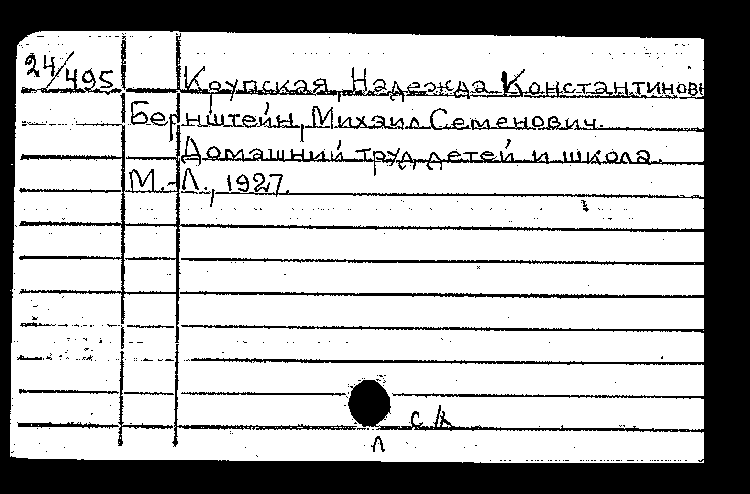 24/495 Крупская, Надежда Константинов
Бернштейн, Михаил Семенович.
Домашний труд детей и школа.
М.-Л., 1927.
л